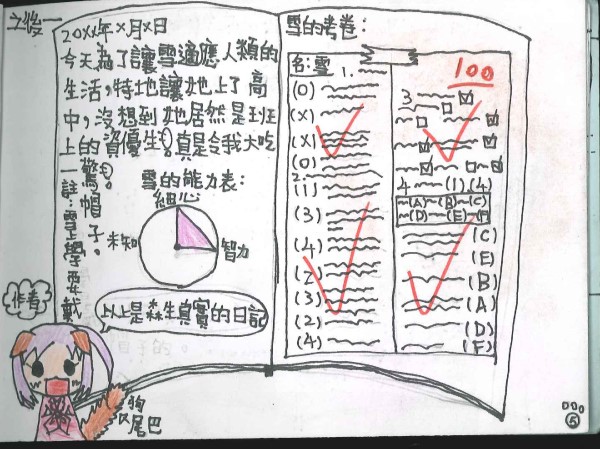 之後一
20XX年X月X日
今天為了讓雪適應人類的
生活,特地讓她上了高
中,沒想到她居然是班
上的資優生。真是令我大吃
一驚。
註:雪上學要戴
帽子。
雪的能力表:
細心
未知
智力
以上是森生真實的日記
作者
狗
尾巴
雪的考卷:
名:雪
100
1.
(O)
(X)
(X)
(O)
2.
(1)
(3)
(4)
(2)
(3)
(2)
(4)
3
4 (1)(4)
(A)~(B)~(C)
~(D)~(E)~(F)
(C)
(E)
(B)
(A)
(D)
(F)
5